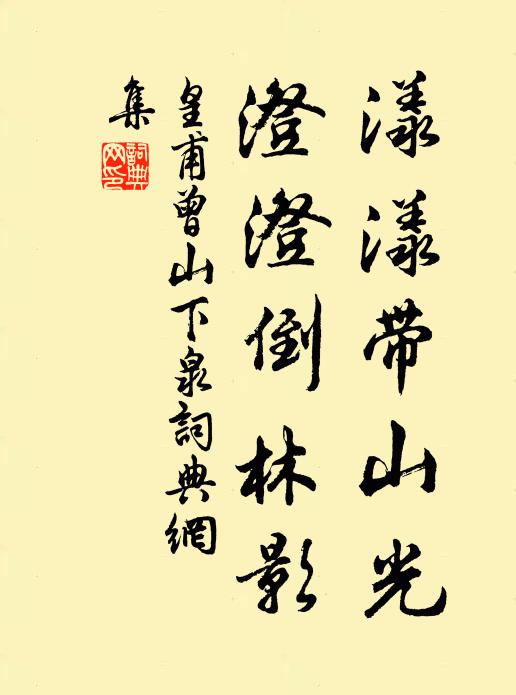 漾漾帶山光
澄澄倒林影
皇甫曾山下泉詞典網
集
詞典
网印